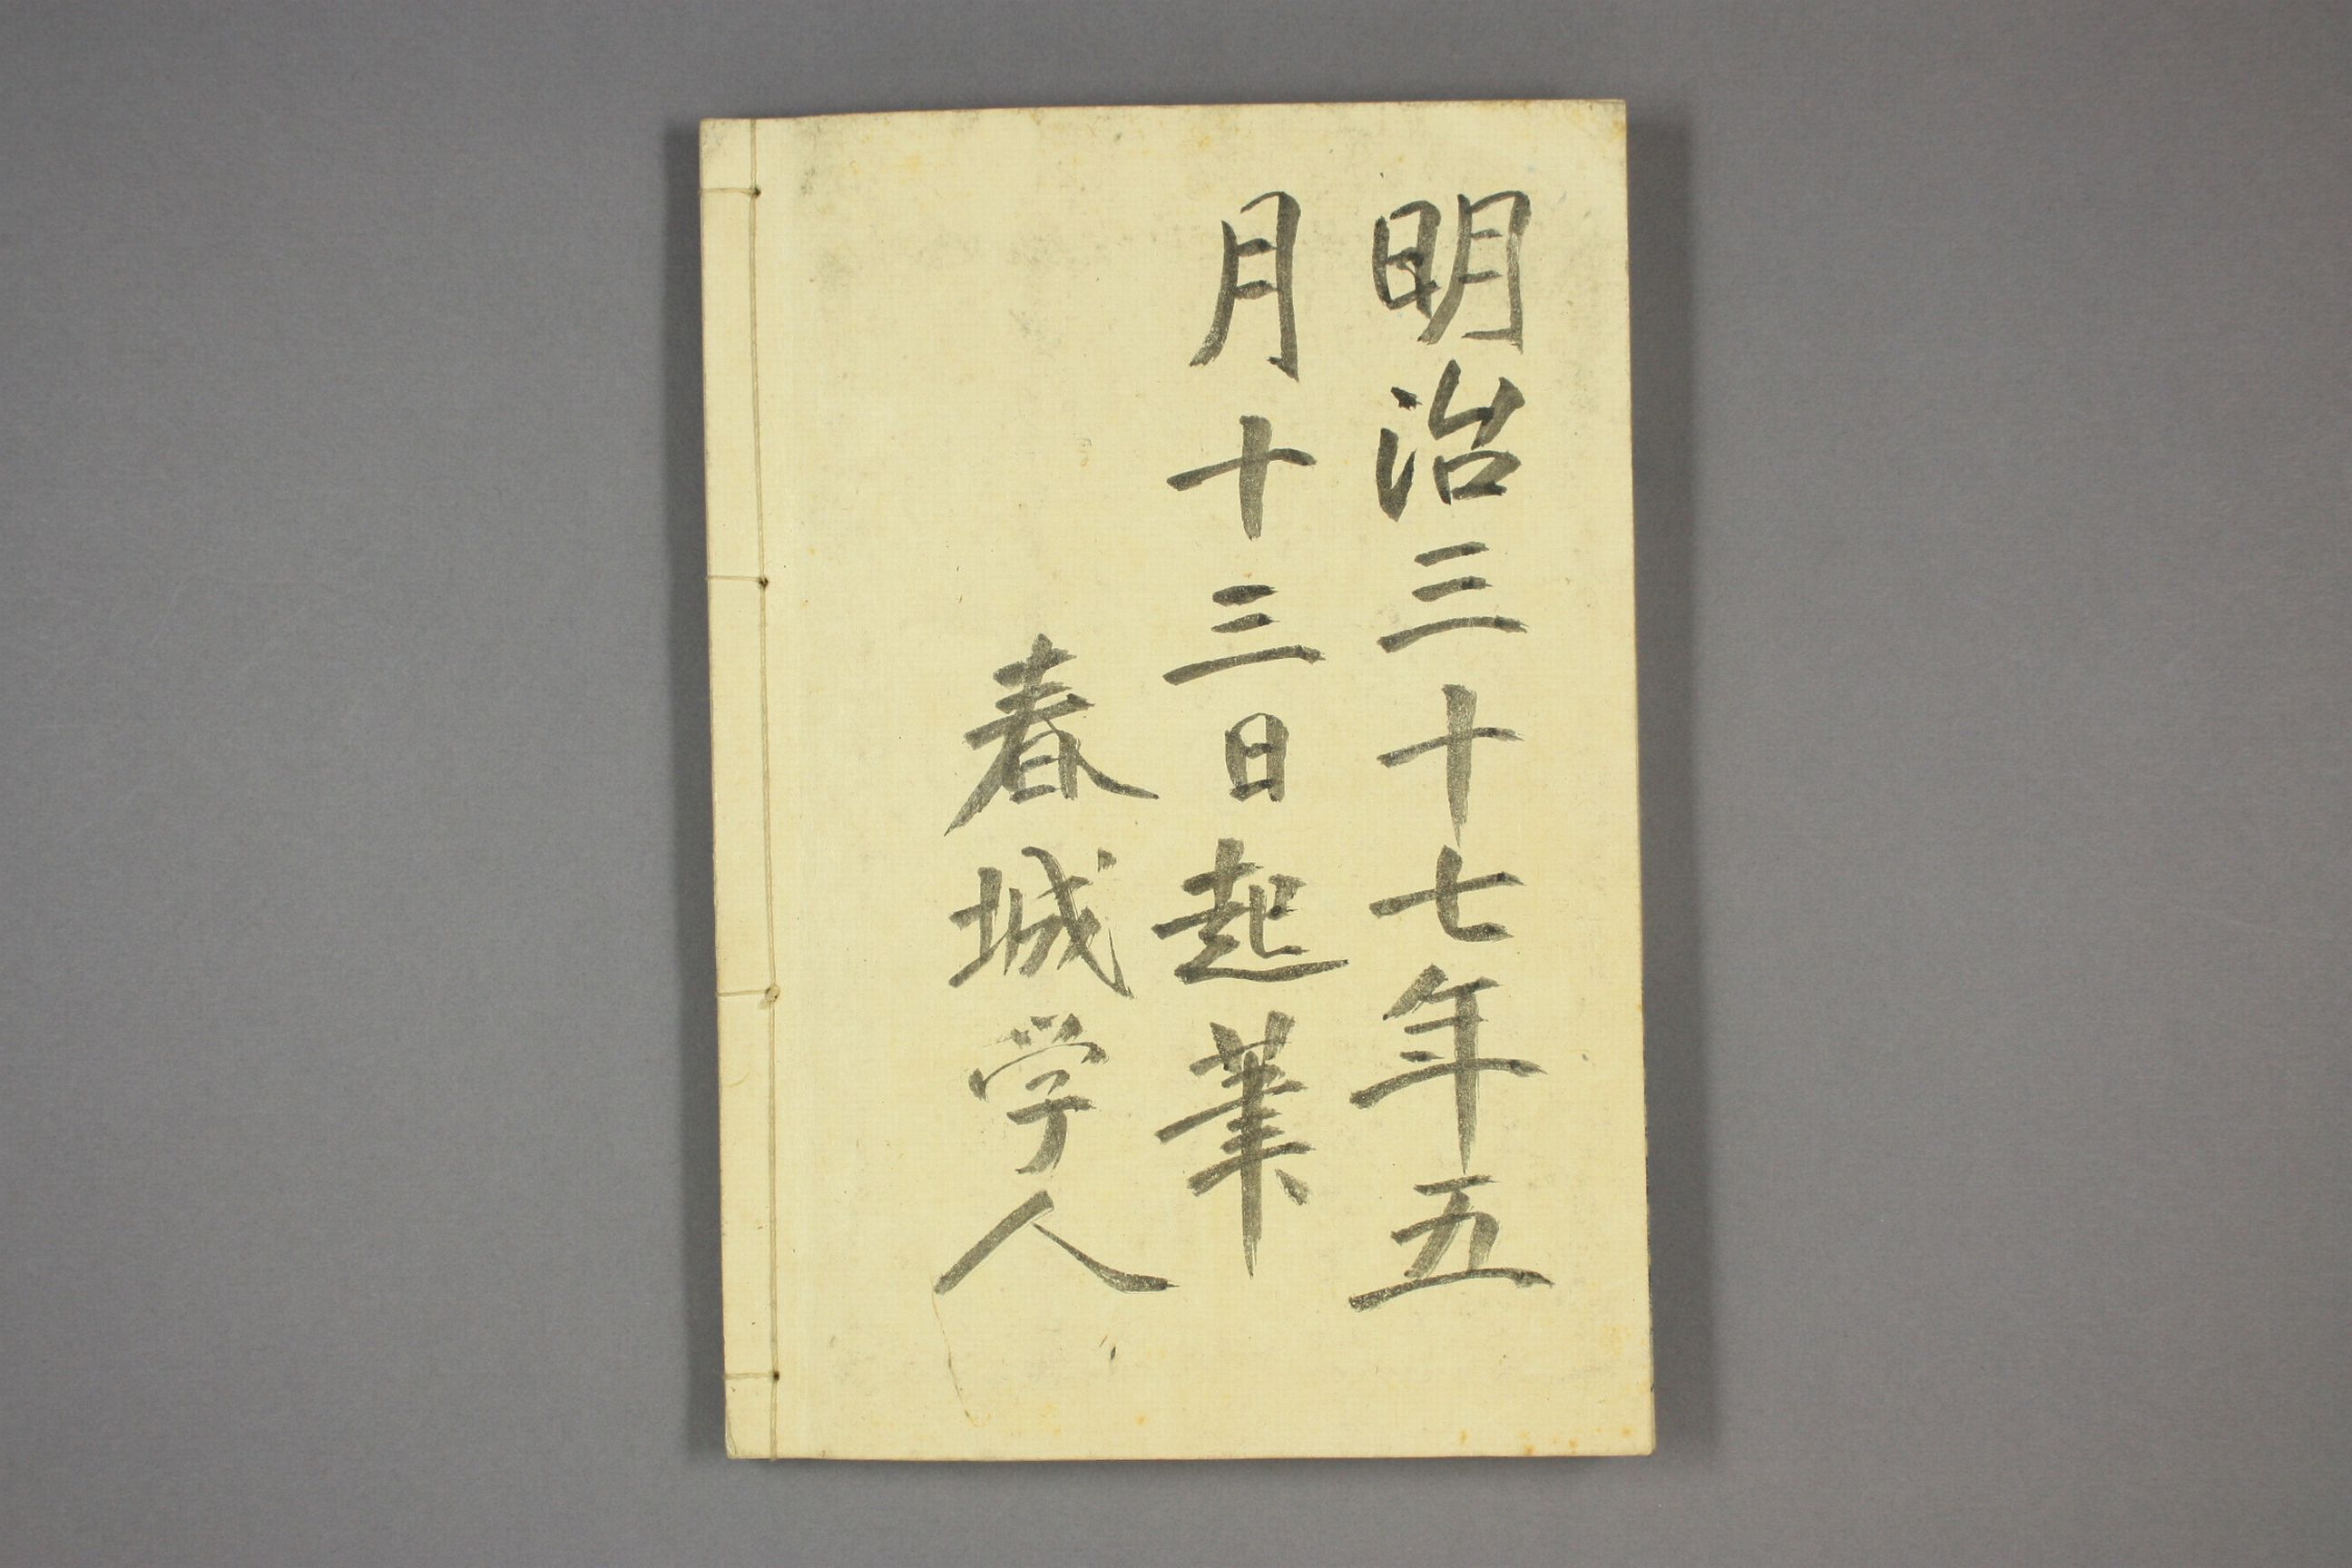 明治三十七年五
月十三日起筆
春城学人